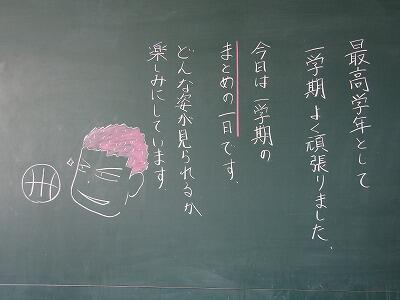 最高学年として
一学期よく頑張りました.
今日は一学期の
まとめの一日です.
どんな姿が見られるか
楽しみにしています.